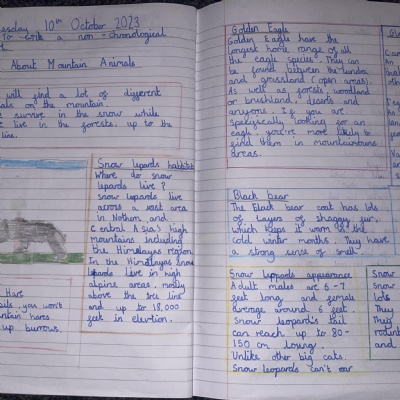 Tuesday 10th October 2023
To write a non-chronological
About Mountain Animals
will find a lot of different
on the mountain.
survive in the snow while
live in the forests, up to the
line.
Snow lepards habbitat
Where do snow
lepards live?
snow lepards live
across a vast area
in Nothern and
Central Asya's high
mountains including
the Himalayas region.
In the Himalayas snow
lepards live in high
alpine areas, mostly
above the tree line
and up to 18,000
feet in elevtion.
Hare
you won't
mountain hares
up burrows.
Golden Eagle
Golden Eagle have the
longest home range of all
the eagle species. They can
be found between the tundra
and grassland (open areas).
As well as forests, woodland
or brushland, deserts and
canyons. If you are
specifically looking for an
eagle you're more likely to
find them in mountainous
areas.
Black bear
The Black bear coat has lots
of Layers of shaggy fur,
which keeps it warm in the
cold winter months. They have
a strong sense of smell.
Snow leppards appearance
Adult males are 6-7
feet long and female
average around 6 feet.
Snow leopard's tail
can reach up to 80-
150 cm loung.
Unlike other big cats.
Snow leopards can't oar
Snow
Snow
lots
They
They
and